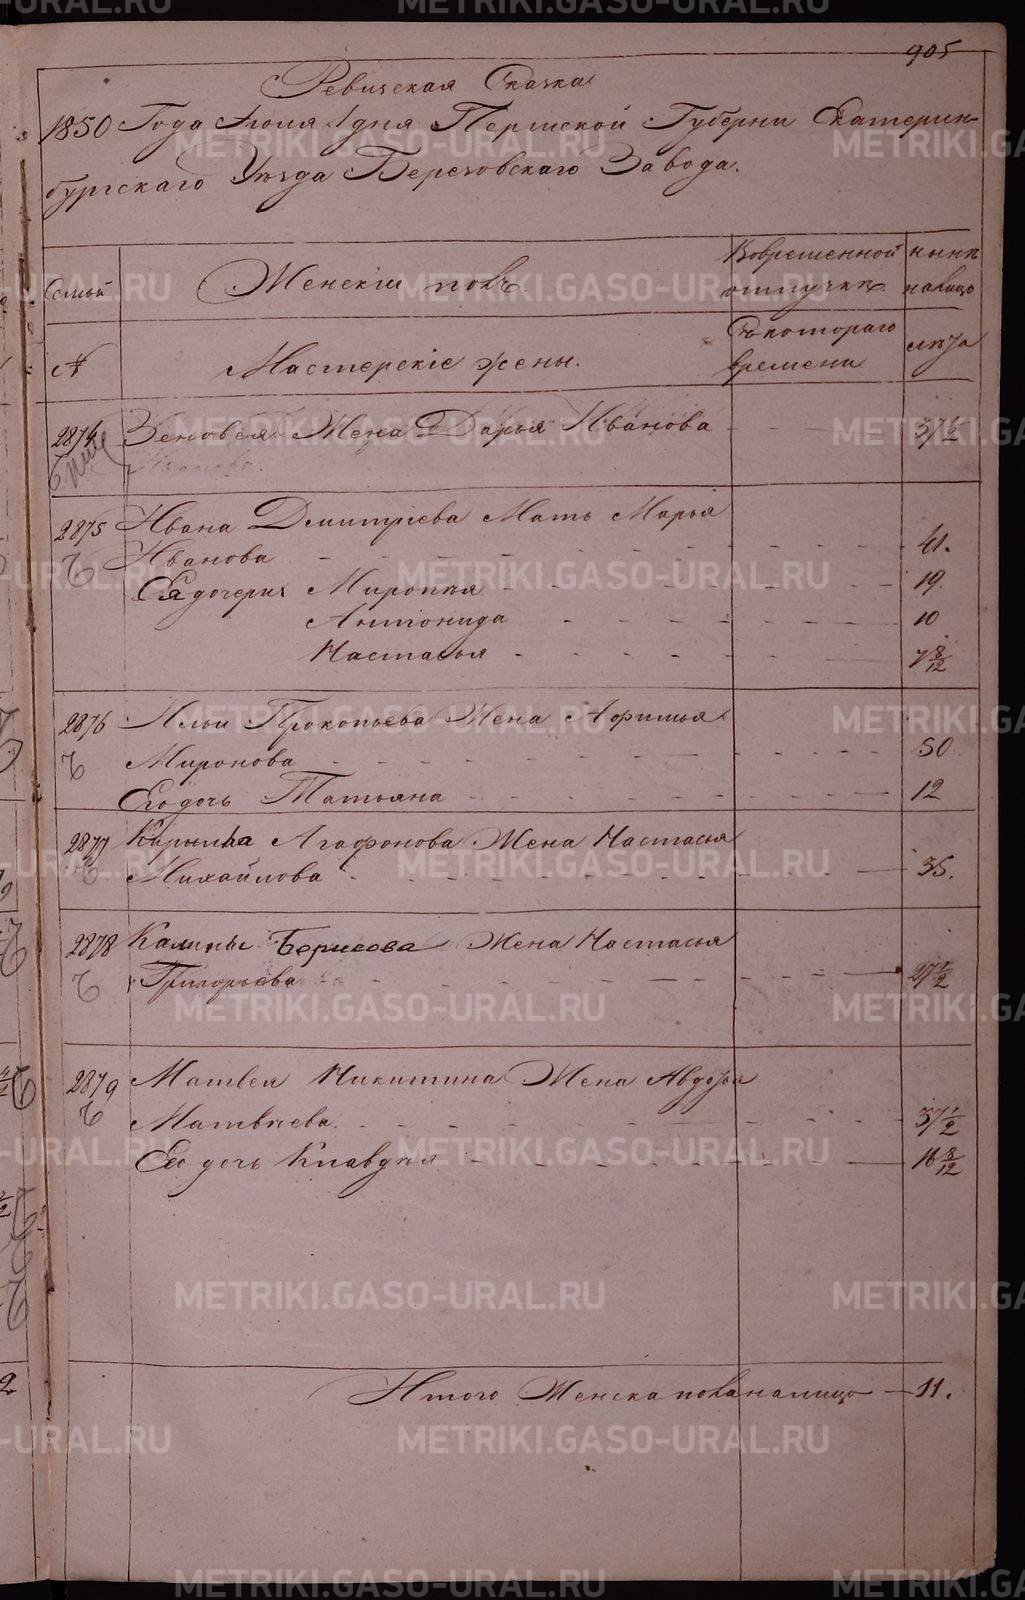 905
Ревизская Сказка
1850 Года Июля 1 дня Пермской Губернии Екатерин-
бургскаго Уѣзда Березовскаго Завода.
Семьи Женскій полъ. Во временной нынѣ
отлучкѣ налицо
№ Мастерскіе жены. Съ котораго лѣта
времени
2874 Зеновея Жена Дарья Иванова 37 1/2
2875 Ивана Дмитріева Мать Марья
Иванова 41.
Ея дочери Миропия 19.
Антонида 10
Настасья 7 8/12
2876 Ильи Прокопьева Жена Афимья
Миронова 50
Его дочь Татьяна 12
2877 Кирила Агафонова Жена Настасья
Михайлова 35.
2878 Калины Борисова Жена Настасья
Григорьева 27 1/2
2879 Матвея Никитина Жена Авдотья
Матвѣева 37 1/2
Ео дочь Клавдия 16 8/12
Итого Женска пола налицо 11.
METRIKI.GASO-URAL.RU